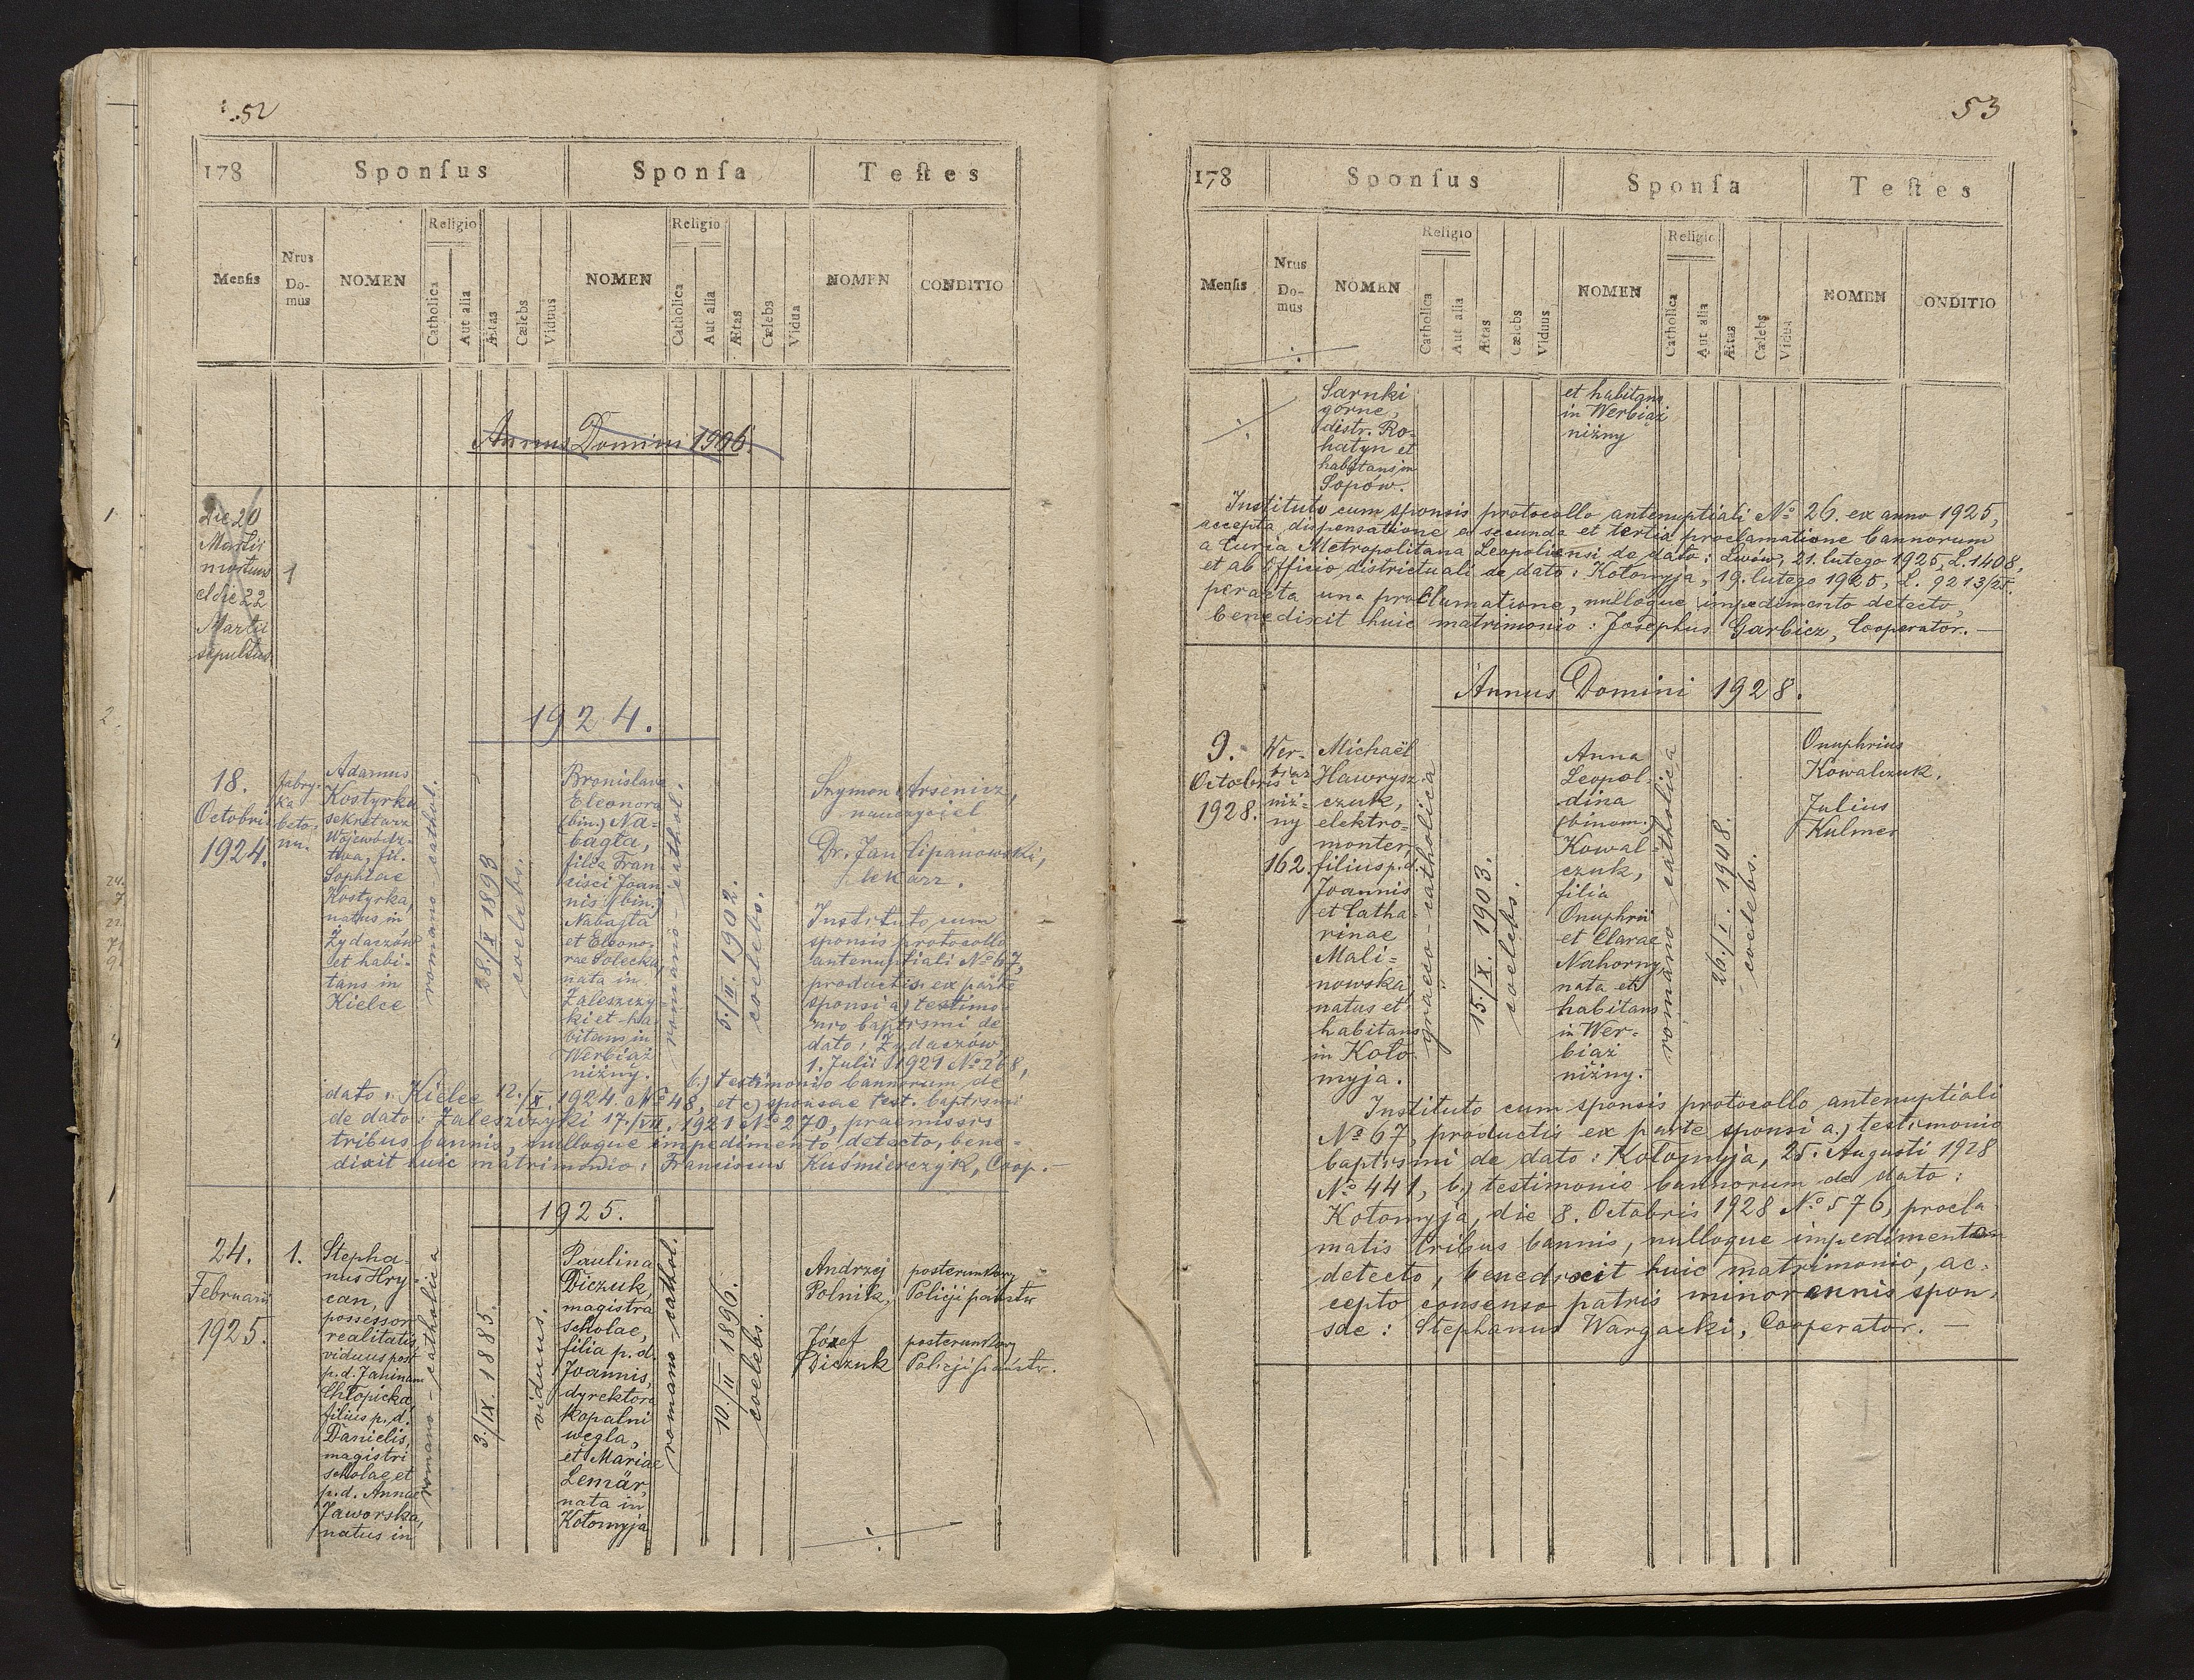 52
178 Sponſus Sponſa Teſtes
Menſis
Nrus
Do-
mus
NOMEN
Religio
Catholica
Aut alia
Ætas
Cælebs
Viduus
NOMEN
Religio
Catholica
Aut alia
Ætas
Cælebs
Vidua
NOMEN
CONDITIO
Annus Domini 1906.
die 20
Martii
mortuus
et die 22
Martii
sepultus
1
1924.
18.
Octobris
1924.
fabry-
ka
beto-
nu.
Adamus
Kostyrka
sekretarz
Wojewódz-
twa, fil.
Sophiae
Kostyrka,
natus in
Żydaczów
et habi-
tans in
Kielce
romano-cathol.
28./X 1893
coelebs.
Bronislava
Eleonora
(bin.) Na-
bagła,
filia Fran-
cisci Joan-
nis (bin.)
Nabagła
et Eleono-
rae Solecka,
nata in
Zaleszczy-
ki et ha-
bitans in
Werbiąż
niżny.
romano-cathol.
5./II. 1902.
coelebs.
Szymon Arsenicz,
nauczyciel
Dr. Jan Lipanowski,
lekarz.
Instituto cum
sponsis protocollo
antenuptiali No 67,
productis ex parte
sponsi a) testimo-
nio baptismi de
dato: Żydaczów,
1. Julii 1921 No 268,
b.) testimonio bannorum de
dato: Kielce 12./X 1924 No 48, et c) sponsae test. baptismi
de dato: Zaleszczyki 17./VII. 1921 No 270, praemissis
tribus bannis, nulloque impedimento detecto, bene-
dixit huic matrimonio: Franciscus Kuśmierczyk, Coop. —
1925.
24.
Februarii
1925.
1.
Stepha-
nus Hry-
can,
possessor
realitatis,
viduus post
p. d. Janinam
Chłopicka,
filius p. d.
Danielis,
magistri
scholae et
p. d. Annae
Jaworska,
natus in
romano-catholica
3./IX. 1885.
viduus.
Paulina
Diczuk,
magistra
scholae,
filia p. d.
Joannis,
dyrektora
kopalni
węgla,
et Mariae
Lemär,
nata in
Kołomyja
romano-cathol.
10./II 1896.
coelebs.
Andrzej
Polnik,
posterunkowy
Policji państw.
Józef
Diczuk
posterunkowy
Policji państw.
53
178 Sponſus Sponſa Teſtes
Menſis
Nrus
Do-
mus
NOMEN
Religio
Catholica
Aut alia
Ætas
Cælebs
Viduus
NOMEN
Religio
Catholica
Aut alia
Ætas
Cælebs
Vidua
NOMEN
ONDITIO
Sarnki
górne,
distr. Ro-
hatyn et
habitans in
Sopów.
et habitans
in Werbiąż
niżny
Instituto cum sponsis protocollo antenuptiali No 26. ex anno 1925,
accepta dispensatione a secunda et tertia proclamatione bannorum
a Curia Metropolitana Leopoliensi de dato: Lwów, 21. lutego 1925, L. 1408,
et ab Officio districtuali de dato: Kołomyja, 19. lutego 1925, L. 9213/25.
peracta una proclamatione, nulloque impedimento detecto,
benedixit huic matrimonio: Josephus Garbicz, Cooperator. —
Annus Domini 1928.
9.
Octobris
1928.
Wer-
biąż
niż-
ny
162
Michaël
Hawrysz-
czuk,
elektro-
monter,
filius p. d.
Joannis
et Catha-
rinae
Mali-
nowska,
natus et
habitans
in Koło-
myja.
graeco-catholica
15./X. 1903.
coelebs.
Anna
Leopol-
dina
(binom.)
Kowal-
czuk,
filia
Onuphrii
et Clarae
Nahorny,
nata et
habitans
in Wer-
biąż
niżny.
romano-catholica
26./I. 1908.
coelebs.
Onuphrius
Kowalczuk.
Julius
Kulmer
Instituto cum sponsis protocollo antenuptiali
No 67, productis ex parte sponsi a.) testimonio
baptismi de dato: Kołomyja, 25. Augusti 1928
No 441, b.) testimonio bannorum de dato:
Kołomyja, die 8. Octobris 1928 No 576, procla-
matis tribus bannis, nulloque impedimento
detecto, benedixit huic matrimonio, ac-
cepto consenso patris minorennis spon-
sae: Stephanus Wargacki, Cooperator. —